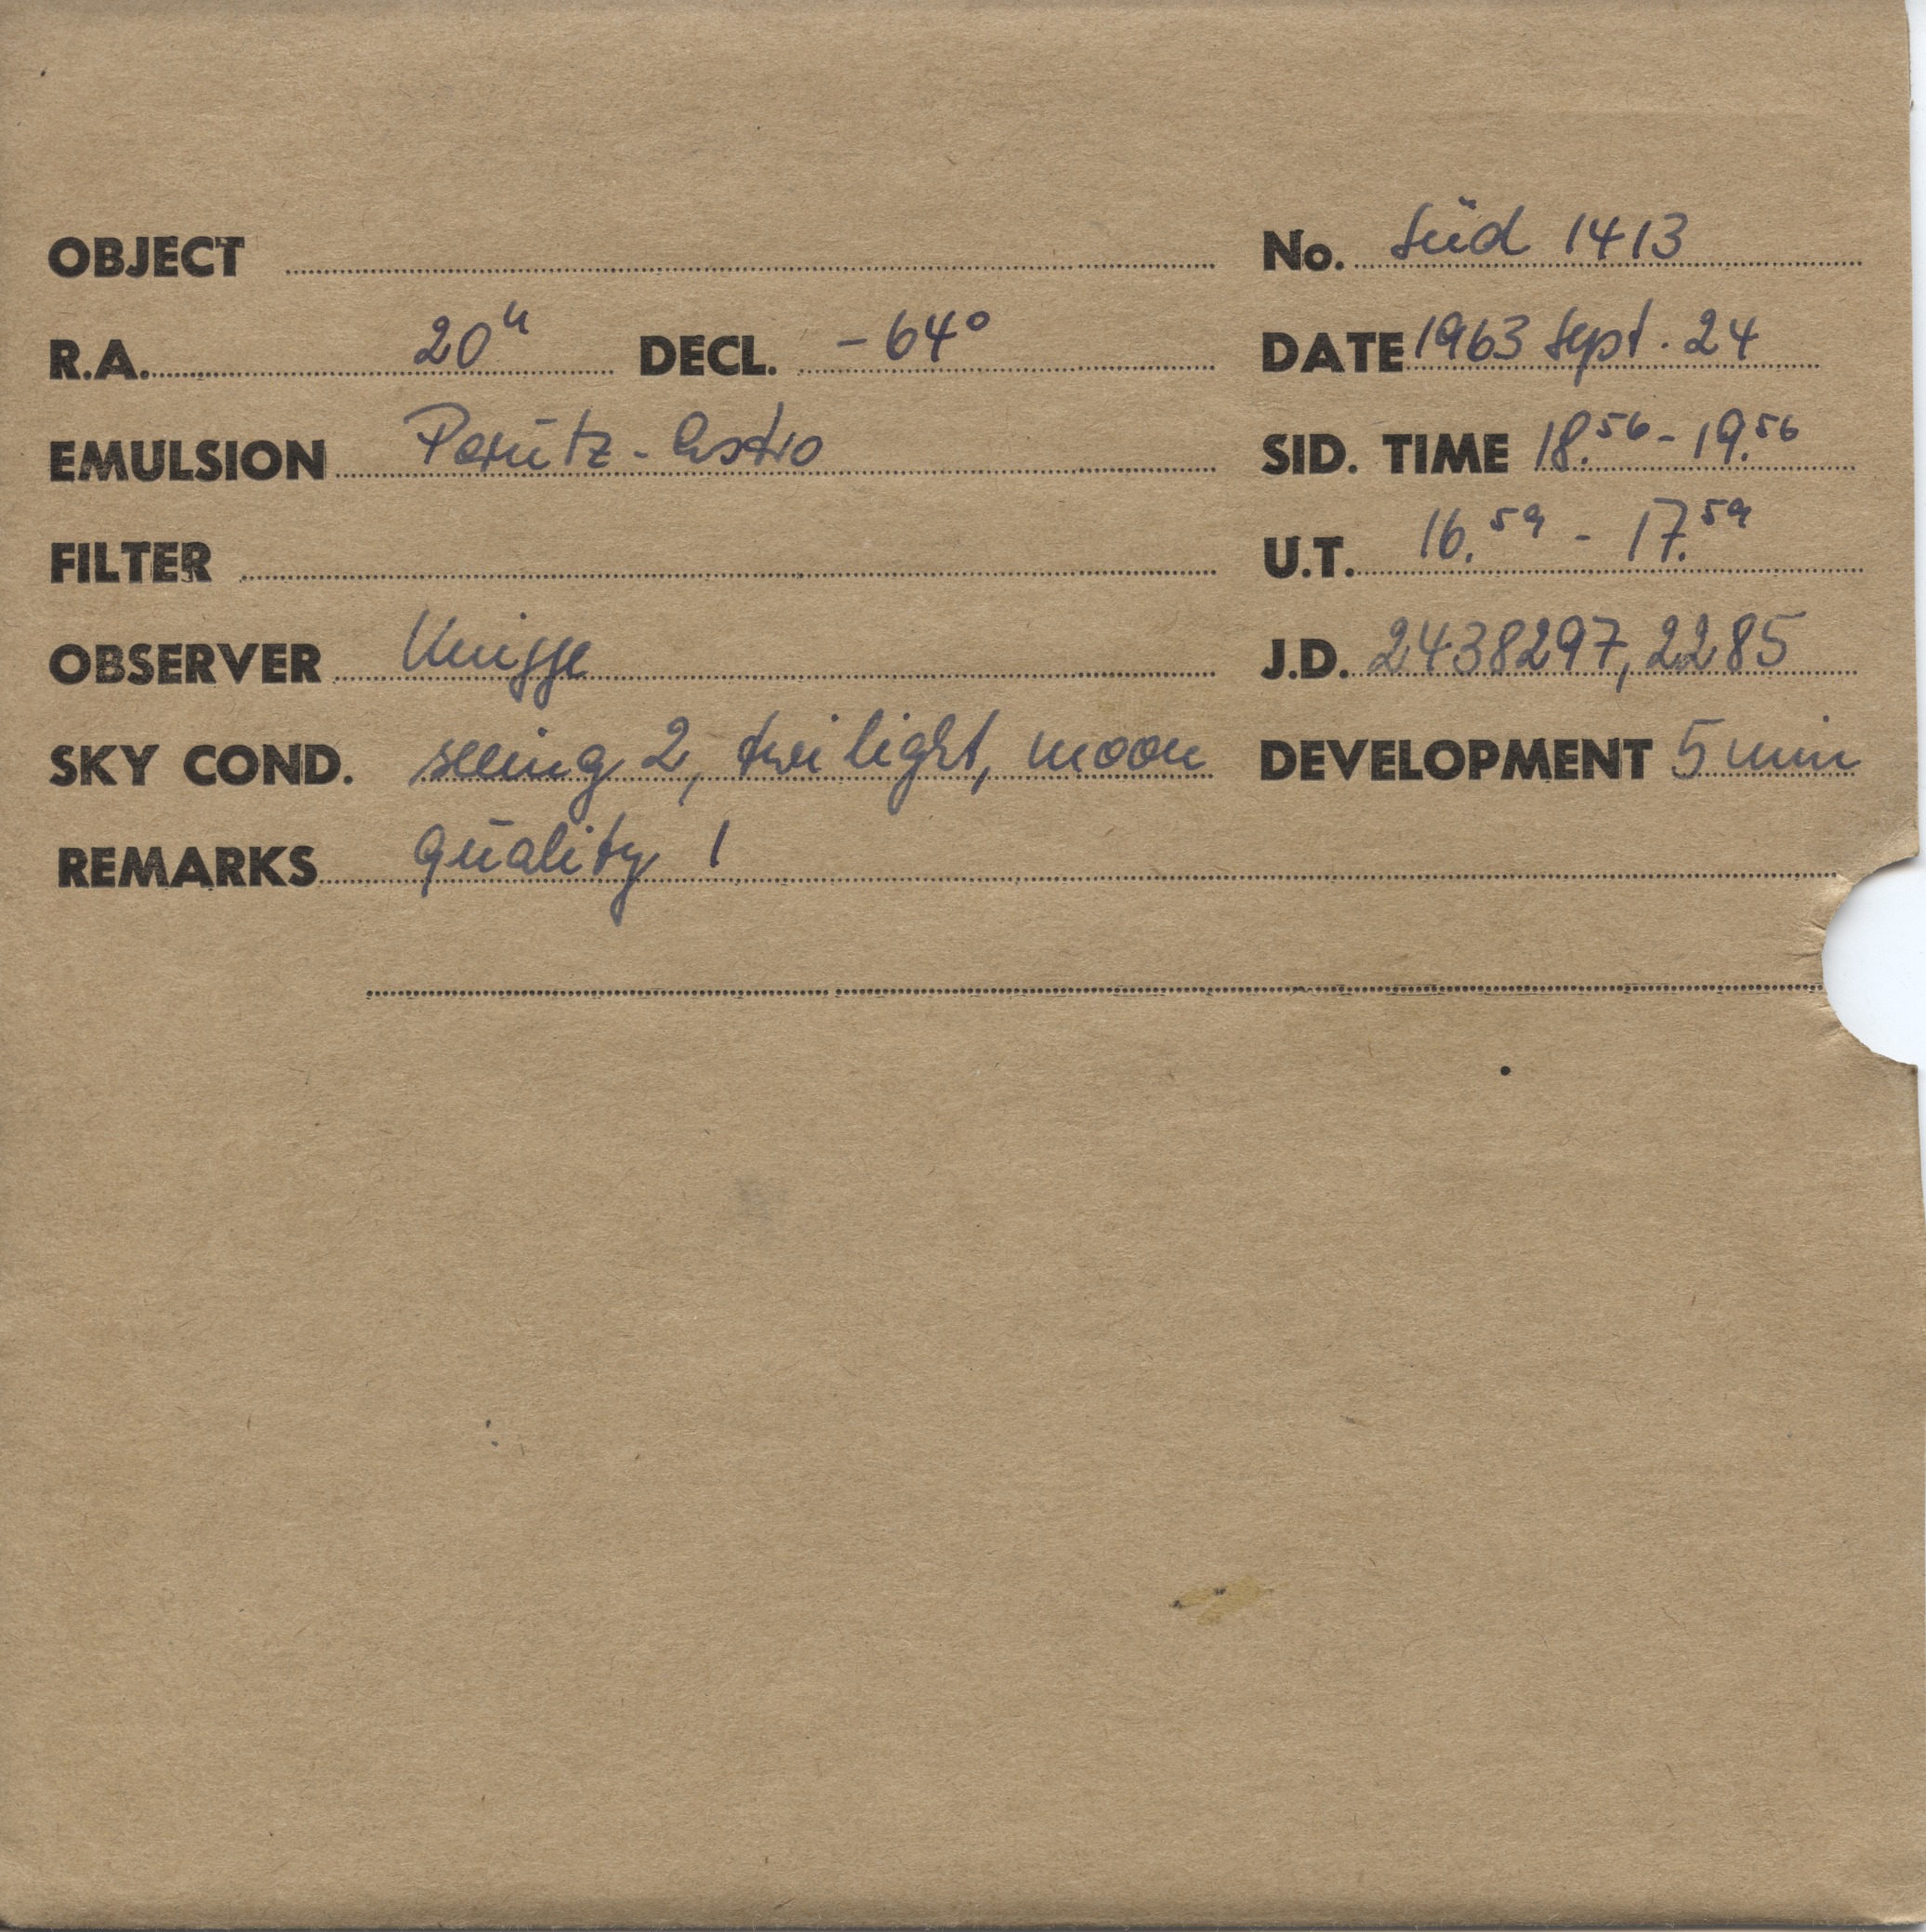 OBJECT No. Süd 1413
R.A. 20h DECL. -64° DATE 1963 Sept. 24
EMULSION Perutz-Astro SID. TIME 18.56 - 19.56
FILTER U.T. 16.59 - 17.59
OBSERVER Knigge J.D. 2438297,2285
SKY COND. seeing 2, twilight, moon DEVELOPMENT 5 min
REMARKS quality 1